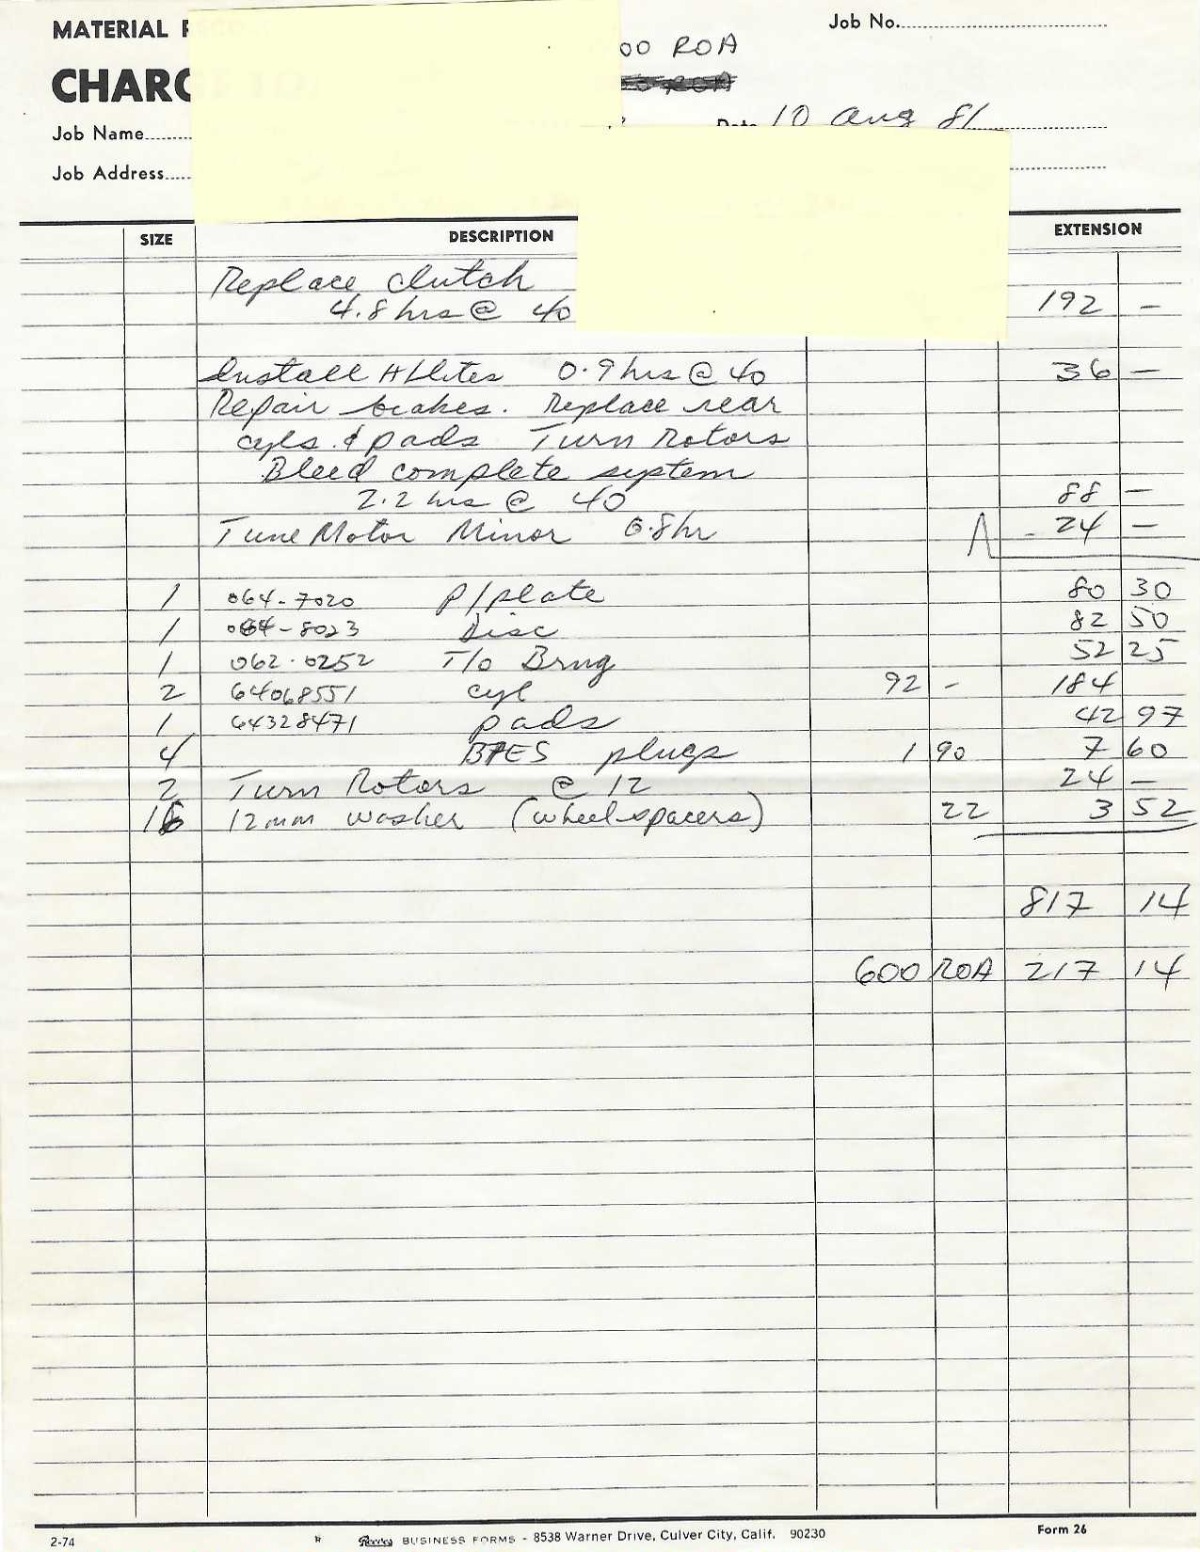 MATERIAL
Job No.
00 ROA
CHARG
Job Name
Date 10 Aug 81
Job Address
SIZE DESCRIPTION EXTENSION
Replace clutch
4.8 hrs @ 40 192 —
Install H Lites 0.9 hrs @ 40 36 —
Repair brakes. Replace rear
cyls. & pads Turn Rotors
Bleed complete system
2.2 hrs @ 40 88 —
Tune Motor Minor 0.8 hr 24 —
1 064-7020 P/plate 80 30
1 064-8023 Disc 82 50
1 062-0252 T/o Brng 52 25
2 64068551 cyl 92 - 184
1 64328471 pads 42 97
4 plugs 1 90 7 60
2 Turn Rotors @ 12 24 —
16 12mm washer (wheel spacers) 22 3 52
817 14
600 ROA 217 14
2-74 BUSINESS FORMS - 8538 Warner Drive, Culver City, Calif. 90230 Form 26